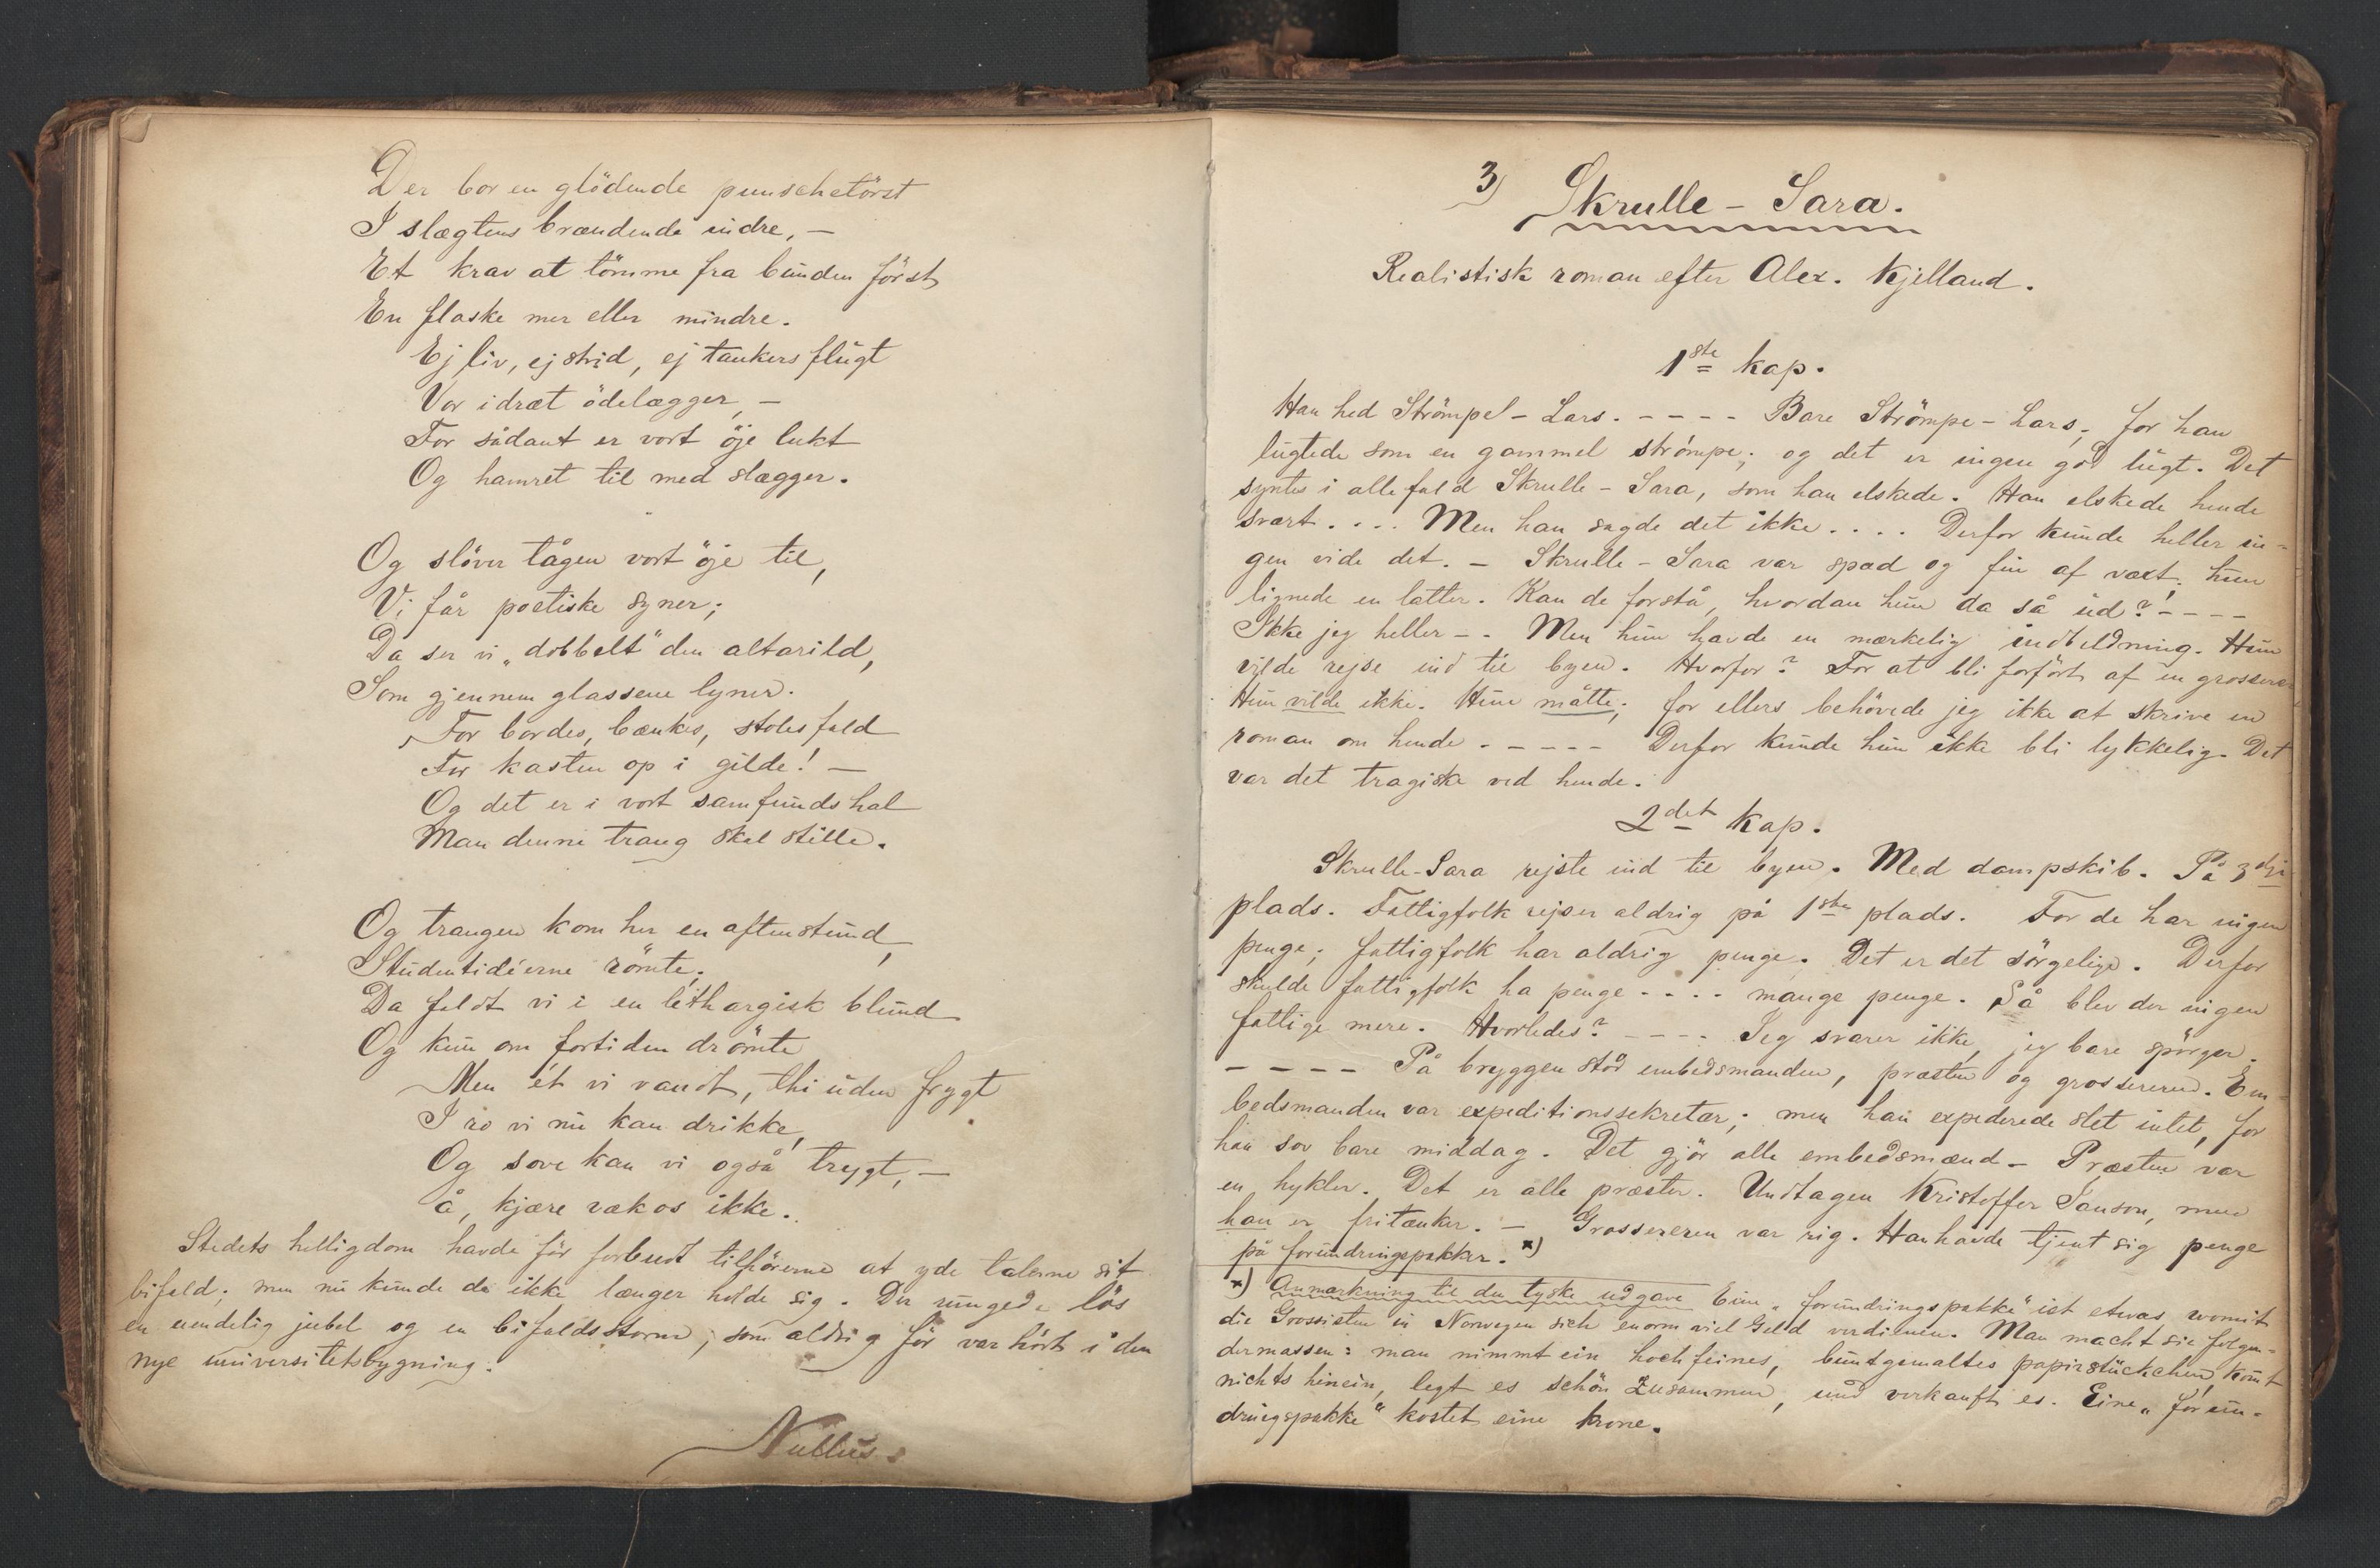 Der bor en glödende punschetörst
I slægtens brændende indre, –
Et krav at tömme fra bunden först
En flaske mer eller mindre.
Ej liv, ej strid, ej tankers flugt
Vor idræt ödelægger, –
For sådant er vort öje lukt
Og hamret til med slægger.
Og slöver tågen vort öje til,
Vi får poetiske syner;
Da ser vi „dobbelt" den altarild,
Som gjennem glassene lyner.
For bordes, bænkes, stolesfald
For kasten op i gilde! –
Og det er i vort samfundshal
Man denne trang skal stille.
Og trangen kom her en aftenstund,
Studentidéerne römte;
Da faldt vi i en lethargisk blund
Og kun om fortiden drömte
Men ét vi vandt, thi uden frygt
I ro vi nu kan drikke,
Og sove kan vi også trygt, –
Å, kjære væk os ikke.
Stedets helligdom havde för forbudt tilhörerne at yde talerne sit
bifald; men nu kunde de ikke længer holde sig. Der rungede lös
en uendelig jubel og en bifaldsstorm, som aldrig för var hört i den
nye universitetsbygning.
Nullus.
3) Skrulle – Sara.
Realistisk roman efter Alex. Kjelland.
1ste kap.
Han hed Strömpe – Lars. – – – – Bare Strömpe – Lars; for han
lugtede som en gammel strömpe; og det er ingen god lugt. Det
syntes i allefald Skrulle – Sara, som han elskede. Han elskede hende
svært. . . . Men han sagde det ikke. . . . Derfor kunde heller in=
gen vide det. – Skrulle – Sara var spæd og fin af væxt; hun
lignede en latter. Kan de forstå, hvordan hun da så ud? – – – –
Ikke jeg heller – . Men hun havde en mærkelig indbildning. Hun
vilde rejse ind til byen. Hvorfor? For at bli forfört af en grosserer
Hun vilde ikke. Hun måtte; for ellers behövede jeg ikke at skrive en
roman om hende. – – – – Derfor kunde hun ikke bli lykkelig. Det
var det tragiske ved hende.
2det kap.
Skrulle-Sara rejste ind til byen. Med dampskib. På 3dje
plads. Fattigfolk rejser aldrig på 1ste plads. For de har ingen
penge; fattigfolk har aldrig penge. Det er det sörgelige. Derfor
skulde fattigfolk ha penge . . . . mange penge. Så blev der ingen
fattige mere. Hvorledes? – – – – Jeg svarer ikke, jeg bare spörger.
– – – – På bryggen stod embedsmanden, præsten og grossereren. Em=
bedsmanden var expeditionssekretær; men han expederede slet intet, for
han sov bare middag. Det gjör alle embedsmænd – Præsten var
en hykler. Det er alle præster. Undtagen Kristoffer Janson, men
han er fritænker. – Grossereren var rig. Han havde tjent sig penge
på forundringspakker. *)
*) Anmærkning til den tyske udgave Eine „forundringspakke" ist etwas, womit
die Grossisten in Norwegen sich enorm viel Geld verdienen. Man macht sie folgen=
dermassen: man nimmt ein hochfeines, buntgemaltes papirstückchen, komt
nichts hinein, legt es schön zusammen, und verkauft es. Eine „forun=
dringspakke" kostet eine krone.